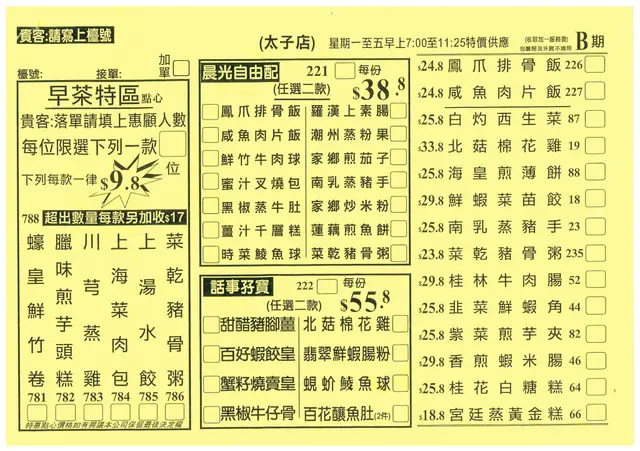 貴客:請寫上檯號
(太子店)
星期一至五早上7:00至11:25特價供應
(收取加一服務費)
B期
檯號:
接單:
加單
早茶特區 點心
貴客:落單請填上惠顧人數
每位限選下列一款
位
下列每款一律 $9.8
788 超出數量每款另加收$17
蠔皇鮮竹卷 781
臘味煎芋頭糕 782
川芎蒸雞 783
上海菜肉包 784
上湯水餃 785
菜乾豬骨粥 786
特惠點心價格如有異議本公司保留最後決定權
晨光自由配
(任選二款)
221
每份
$38.8
鳳爪排骨飯 羅漢上素腸
咸魚肉片飯 潮州蒸粉果
鮮竹牛肉球 家鄉煎茄子
蜜汁叉燒包 南乳蒸豬手
黑椒蒸牛肚 家鄉炒米粉
薑汁千層糕 蓮藕煎魚餅
時菜鯪魚球 菜乾豬骨粥
話事孖寶
(任選二款)
222
每份
$55.8
甜醋豬腳薑 北菇棉花雞
百好蝦餃皇 翡翠鮮蝦腸粉
蟹籽燒賣皇 蜆蚧鯪魚球
黑椒牛仔骨 百花釀魚肚(2件)
$24.8 鳳爪排骨飯 226
$24.8 咸魚肉片飯 227
$25.8 白灼西生菜 87
$33.8 北菇棉花雞 19
$25.8 海皇煎薄餅 88
$29.8 鮮蝦菜苗餃 18
$25.8 南乳蒸豬手 23
$23.8 菜乾豬骨粥 235
$29.8 桂林牛肉腸 52
$25.8 韭菜鮮蝦角 44
$25.8 紫菜煎芋夾 82
$29.8 香煎蝦米腸 46
$25.8 桂花白糖糕 64
$18.8 宮廷蒸黃金糕 66